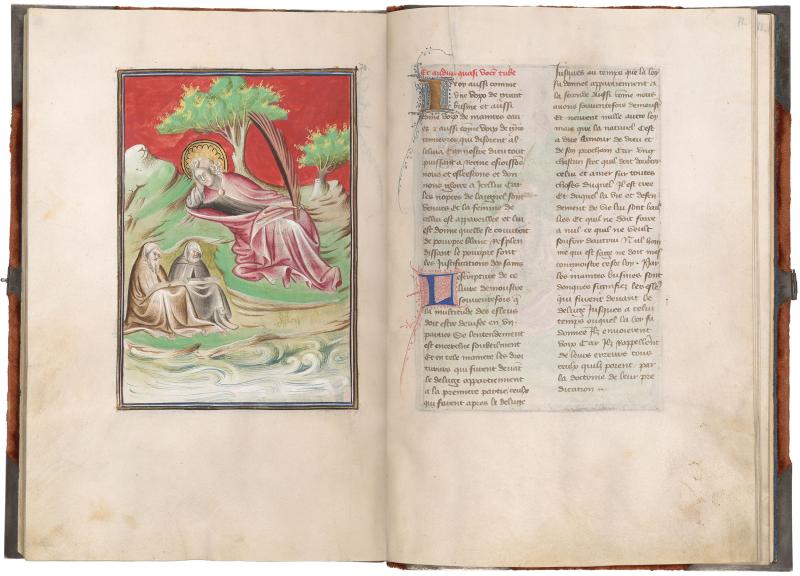 Et audiui quasi vocem tube
Et ioy aussi comme
vne voix de grant
busine et aussi
come voix de maintes eau
es et aussi come voix de
tonnoires qui disoient al
leluia Car nostre dieu tout
puissant a regne
nous et esleescons et don
nons gloire a icellui Car
les nopces de laignel sont
venues et la femme de
cellui est appareillee et lui
est donne quelle se couuroit
de pourpre blanc resplen
dissant le pourpre sont
les justifications des sains
Lescripture de ce
liure demonstre
souuentefois que
la multitude des esleus
doit estre deuisee en
parties Se lentendement
est enserchie soubtilment
Et en tele maniere les doc
teurs qui furent deuant
le deluge appartiennent
a la premiere partie ceulx
qui furent apres le deluge
Jusques au temps que la loy
fu donnee appartiennent a
la seconde Aussi come nous
auons souuentefois demonstre
Et neurent nulle autre loy
mais que la naturel Cest
a dire lamour de dieu et
de son prochain Car vng
chascun scet quil doit doubter
celui et amer sur toutes
choses duquel Il est cree
Et duquel la vie et deffen
dement de vie lui sont bail
lies Et quil ne doit faire
a nul ce quil ne veult
souffrir dautrui Nul hom
me qui est sage ne doit mes
congnoistre ceste loy Par
les maintes busines sont
donques signifiez les esleus
qui furent deuant le
deluge Jusques a celui
temps ouquel la loy fu
donnee Ilz enuoierent
voix Car Ilz rappellerent
de leurs erreurs tous
ceulx quilz porent par
la doctrine de leur pre
dication